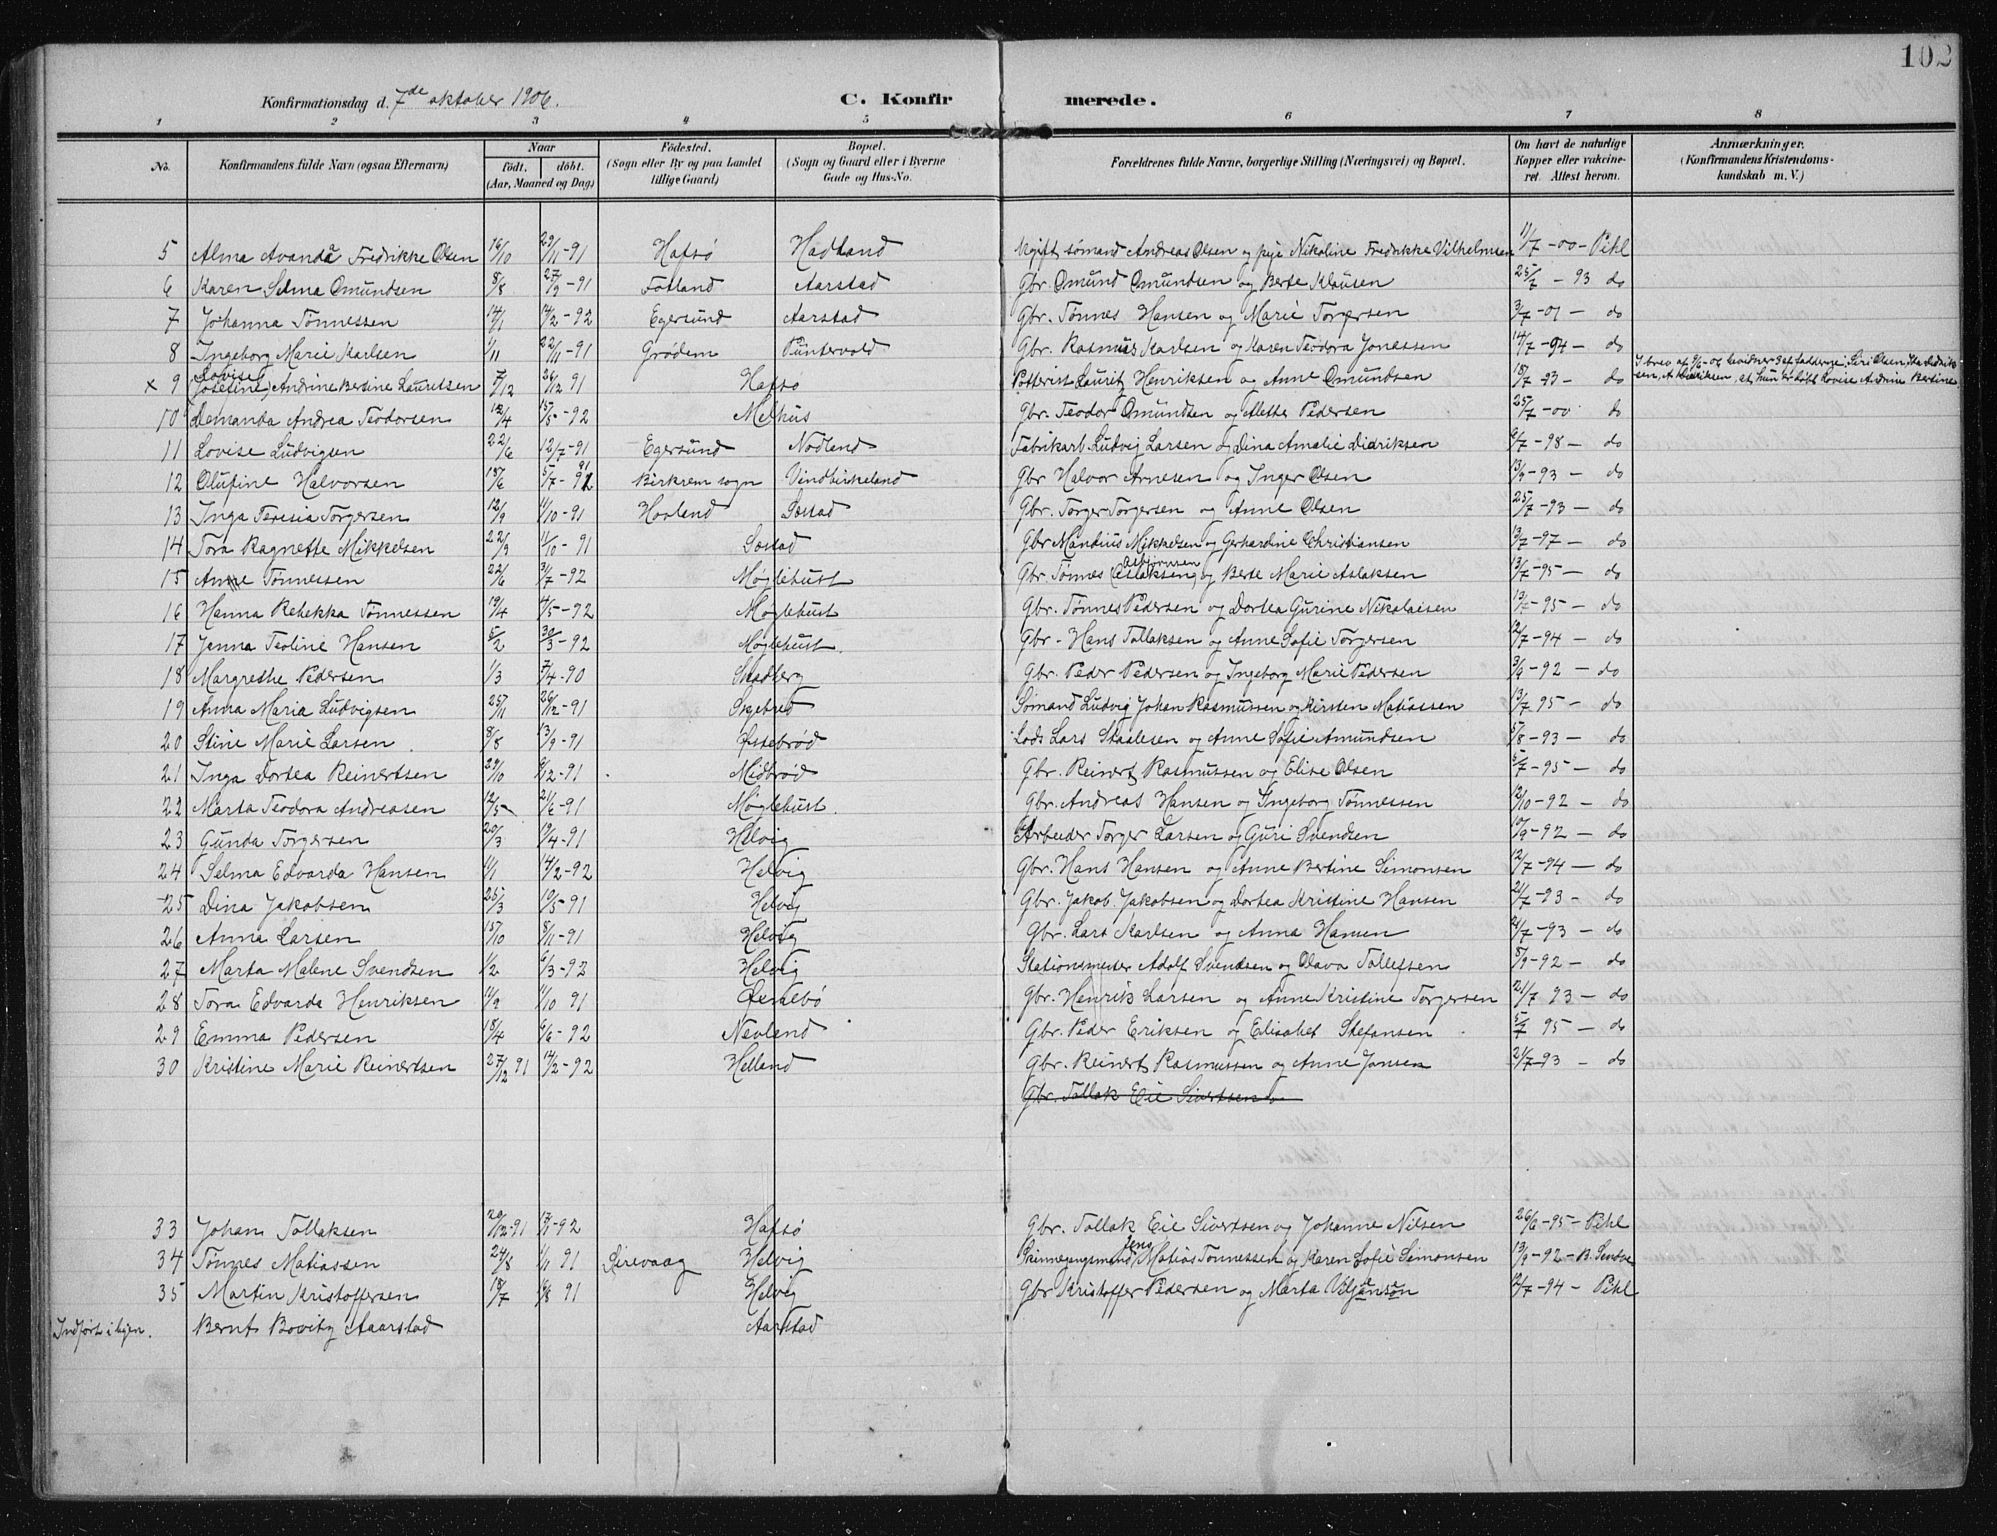 102
Konfirmationsdag d. 7de oktober 1906. C. Konfirmerede.
1 2 3 4 5 6 7 8
No. Konfirmandens fulde Navn (ogsaa Efternavn) Naar födt. döbt. (Aar, Maaned og Dag) Födested. (Sogn eller By og paa Landet tillige Gaard) Bopæl. (Sogn og Gaard eller i Byerne Gade og Hus-No. Forældrenes fulde Navne, borgerlige Stilling (Næringsvei) og Bopæl. Om havt de naturlige Kopper eller vakcineret. Attest herom. Anmærkninger. (Konfirmandens Kristendomskundskab m. V.)
5 Alma Avanda Fredrikke Olsen 16/10 29/11-91 Hafsø Hadland Ugift sømand Andreas Olsen og pige Nikoline Fredrikke Vilhelmsen 11/7-00- Pihl
6 Karen Selma Omundsen 8/8 27/9-91 Fotland Aarstad Gbr. Omund Omundsen og Berte Klausen 25/7-93 do
7 Johanna Tønnessen 14/1 14/2-92 Egersund Aarstad Gbr. Tønnes Hansen og Marie Torgersen 3/7-01- do
8 Ingeborg Marie Karlsen 1/11 22/11-91 Grødem Puntervold Gbr. Rasmus Karlsen og Karen Teodora Jonessen 14/7-94- do
x 9 Lovise (Josefine) Andrine Bertine Lauretsen 7/12 26/12 91 Hafsø Potterist Lauritz Henriksen og Anne Omundsen 18/7-93- do
10 Demanda Andrea Teodorsen 12/4 15/5-92 Melhus Gbr. Teodor Omundsen og Mette Pedersen 25/7-00 do
11 Lovise Ludvigsen 22/6 12/7-91 Egersund Nodland Fabrikarb. Ludvig Larsen og Dina Amalie Didriksen 6/7-98- do
12 Olufine Halvorsen 18/6 5/7-91 Birkrem sogn Vindbirkeland Gbr Halvor Arnesen og Inger Olsen 13/9-93- do
13 Inga Teresia Torgersen 12/9 11/10-91 Hovland Sæstad Gbr. Torger Torgersen og Anne Olsen 25/7-93- do
14 Tora Ragnette Mikkelsen 22/9 11/10-91 Sæstad Gbr Mandius Mikkelsen og Gerhardine Christiansen 13/7-97- do
15 Anne Tønnessen 22/6 3/7-92 Møglebust Gbr. Tønnes (Aslaksen) Asbjørnsen og Berte Marie Aslaksen 13/7-95- do
16 Hanna Rebekka Tønnessen 19/4 4/5-92 Møglebust Gbr. Tønnes Pedersen og Dortea Gurine Nikolaisen 13/7-95- do
17 Jenna Teoline Hansen 5/2 30/3-92 Møglebust. Gbr. Hans Tollaksen og Anne Sofie Torgersen 12/7-94- do
18 Margrethe Pedersen 1/3 7/4-90 Stadberg Gbr. Peder Pedersen og Ingeborg Marie Pedersen 3/9-92- do
19 Anna Maria Ludvigsen 25/11 26/12-91 Skjebred Sømand Ludvig Johan Rasmussen og Kirsten Matiassen 13/7 95- do
20 Stine Marie Larsen 8/8 13/9-91 Østebrød Lods Lars Staalesen og Anne Sofie Amundsen 5/8-93- do
21 Inga Dortea Reinertsen 29/10 6/12-91 Midbrød Gbr. Reinert Rasmussen og Elise Olsen 5/7-95- do
22 Marta Teodora Andreasen 12/5 21/6-91 Møglebust. Gbr. Andreas Hansen og Ingeborg Tønnessen 12/10-92- do
23 Gunda Torgersen 20/3 19/4-91 Helvig Arbeider Torger Larsen og Guri Svendsen 10/9-92- do
24 Selma Edvarda Hansen 11/1 14/2-92 Helvig Gbr. Hans Hansen og Anne Bertine Simonsen 12/7-94- do
25 Dina Jakobsen 25/3 10/5-91 Helvig Gbr. Jakob Jakobsen og Dortea Kristine Hansen 21/7-93- do
26 Anna Larsen 15/10 8/11-91 Helvig Gbr. Lars Karlsen og Anna Hansen 21/7-93- do
27 Marta Malene Svendsen 1/2 6/3-92 Helvig Stationsmester Adolf Svendsen og Olava Tollefsen 8/9-92- do
28 Tora Edvarda Henriksen 11/9 11/10 91 Øendebø Gbr. Henrik Larsen og Anne Kristine Torgersen 21/7 93- do
29 Emma Pedersen 18/4 6/6-92 Nevland Gbr. Peder Eriksen og Elisabet Stefansen 5/7 95- do
30 Kristine Marie Reinertsen 27/12 91 14/2-92 Helland Gbr. Reinert Rasmussen og Anne Jansen 21/7-93- do
Gbr. Tollak Eie Sivertsen
33 Johan Tollaksen 20/12-91 17/1-92 Hafsø Gbr. Tollak Eie Sivertsen og Johanne Nilsen 26/6-95- Pihl
34 Tønnes Matiassen 24/8 1/11 91 Sirevaag Helvig Skinnegangsmand Jens Matias Tønnessen og Karen Sofie Simonsen 13/9-92-
35 Martin Kristoffersen 18/7 16/8 91 Helvig Gbr Kristoffer Pedersen og Marta Viljanson 12/7-94- Pihl
Indført i byen. Bernt Bovitz Aarstad Aarstad